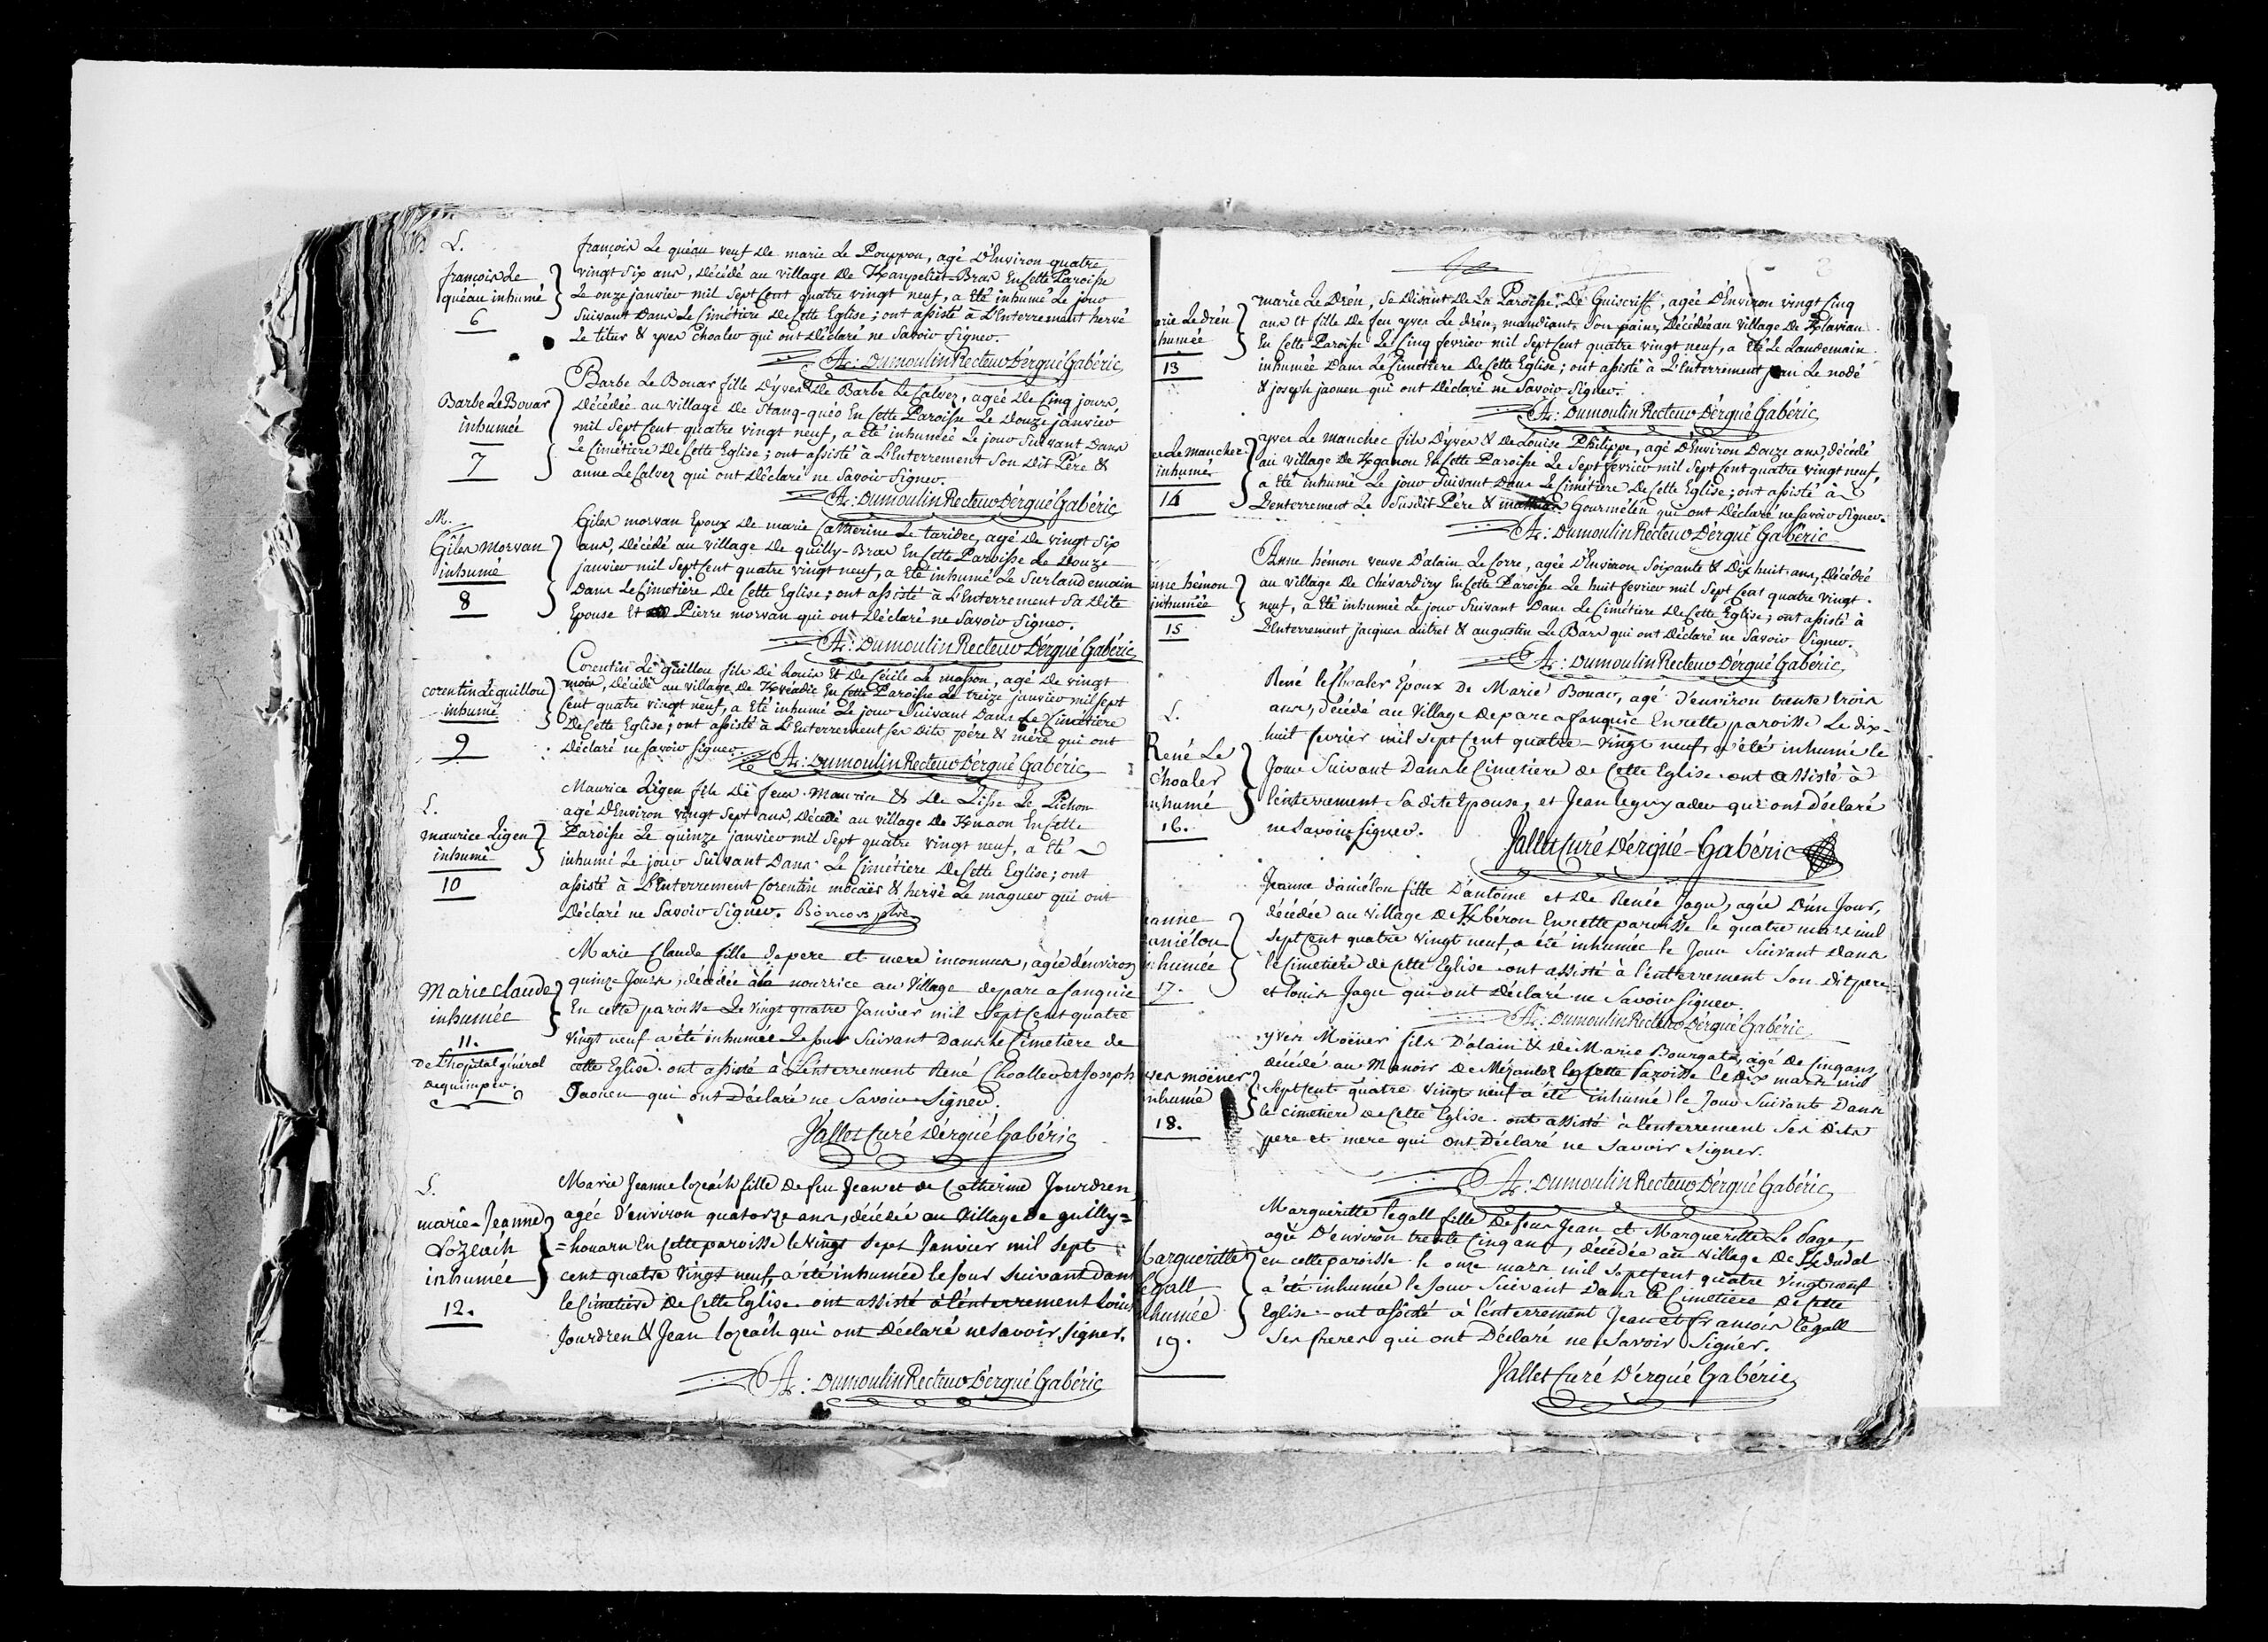 L.
françois Le
quéau inhumé
6
françois Le quéau veuf de marie Le Pouppon, agé D'Environ quatre
vingt Six ans, Décédé au village de Bras En Cette Paroisse
Le onze janvier mil Sept Cent quatre vingt neuf, a Eté inhumé Le jour
Suivant Dans Le Cimétiere De Cette Eglise; ont assisté à L'Enterrement hervé
Le titur & yves Choaler qui ont Déclaré ne Savoir Signer.
A: Dumoulin Recteur D'ergué Gabéric
Barbe Le Bouar
inhumée
7
Barbe Le Bouar fille D'yves & De Barbe Le Calvez, agée De Cinq jours,
Décédée au village de Stang-quéo En Cette Paroisse Le Douze janvier
mil Sept Cent quatre vingt neuf, a été inhumée Le jour Suivant Dans
Le Cimétiere De Cette Eglise; ont assisté à L'Enterrement Son Dit Pére &
anne Le Calvez qui ont Déclaré ne Savoir Signer.
A: Dumoulin Recteur D'ergué Gabéric
M.
Giles Morvan
inhumé
8
Giles morvan Epoux De marie Catherine Le taridec, agé De vingt Six
ans, Décédé au village de quilly-Bras En Cette Paroisse Le Douze
janvier mil Sept Cent quatre vingt neuf, a Eté inhumé Le Surlandemain
Dans Le Cimetiére De Cette Eglise; ont assisté à L'Enterrement Sa Dite
Epouse Et Pierre morvan qui ont Déclaré ne Savoir Signer.
A: Dumoulin Recteur D'ergué Gabéric
Corentin Le quillou
inhumé
9
Corentin Le quillou fils De Louis Et De Cécile Le masson, agé De vingt
mois, Décédé au village De En Cette Paroisse Le treize janvier mil Sept
Cent quatre vingt neuf, a Eté inhumé Le jour Suivant Dans Le Cimetiére
De Cette Eglise; ont assisté à L'Enterrement Ses Dits pére & mére qui ont
Déclaré ne Savoir Signer.
A: Dumoulin Recteur D'ergué Gabéric
L.
maurice Ligen
inhumé
10
Maurice Ligen fils De feux Maurice & De Lisse Le Pichon
agé D'Environ vingt Sept ans, Décédé au village De En Cette
Paroisse Le quinze janvier mil Sept quatre vingt neuf, a Eté
inhumé Le jour Suivant Dans Le Cimétiere De Cette Eglise; ont
assisté à L'Enterrement Corentin mocaër & hervé Le maguer qui ont
Déclaré ne Savoir Signer.
Marie Claude
inhumée
11.
De L'hopital général
de quimper.
Marie Claude fille de pere et mere inconnus, agée d'environ
quinze Jours, décédée à la nourrice au Village de parc a
En cette paroisse Le vingt quatre Janvier mil Sept Cent quatre
vingt neuf a été inhumée Le jour Suivant Dans le Cimetiere de
cette Eglise. ont assisté à L'enterrement René Choaller et Joseph
Jaouen qui ont Déclaré ne Savoir Signer.
Vallet Curé D'ergué Gabéric
L.
marie-Jeanne
Lozeách
inhumée
12.
Marie Jeanne lozeách fille de feu Jean et de Catherine Jourdren,
agée D'environ quatorze ans, décédée au Village de guilly=
=houarn En Cette paroisse le vingt Sept Janvier mil Sept
cent quatre Vingt neuf, a été inhumée le Jour Suivant Dans
le Cimetiére De Cette Eglise. ont assisté à l'enterrement Louis
Jourdren & Jean lozeách qui ont Déclaré ne Savoir signer.
A: Dumoulin Recteur D'ergué Gabéric
Le drén
humée
13
marie Le Drén, Se Disant De La Paroisse De Guiscriff, agée D'Environ vingt Cinq
ans Et fille De feu yves Le drén, mandiant Son pain, Décédée au village De
En Cette Paroisse Le Cinq fevrier mil Sept Cent quatre vingt neuf, a Eté Le Landemain
inhumée Dans Le Cimetiére De Cette Eglise; ont assisté à L'Enterrement jean Le nodé
& joseph jaouen qui ont Déclaré ne Savoir Signer.
A: Dumoulin Recteur D'ergué Gabéric
Le manchec
inhumé
14
yves Le manchec fils D'yves & De Louise Philippe, agé D'Environ Douze ans, Décédé
au village De En Cette Paroisse Le Sept fevrier mil Sept Cent quatre vingt neuf,
a Eté inhumé Le jour Suivant Dans Le Cimétiere De Cette Eglise; ont assisté à
L'enterrement Le Susdit Pére & Gourmélen qui ont Déclaré ne Savoir Signer.
A: Dumoulin Recteur D'ergué Gabéric
hémon
inhumée
15
Anne hémon veuve D'alain Le Corre, agée D'Environ Soixante & Dix huit ans, Décédée
au village De Chévardiry En Cette Paroisse Le huit fevrier mil Sept Cent quatre vingt
neuf, a Eté inhumée Le jour Suivant Dans Le Cimétiere De Cette Eglise; ont assisté à
L'Enterrement jacques autret & augustin Le Bars qui ont Déclaré ne Savoir Signer.
A: Dumoulin Recteur D'ergué Gabéric
L.
René Le
Choaler
inhumé
16.
René le Choaler Epoux De Marie Bonaer, agé D'environ trente trois
ans, décédé au Village de parc a En cette paroisse Le dix-
huit fevrier mil Sept Cent quatre-vingt neuf, a été inhumé le
Jour Suivant Dans le Cimetiere de Cette Eglise. ont assisté à
l'enterrement Sa dite Epouse, et Jean leguyader qui ont déclaré
ne Savoir signer.
Vallet Curé D'ergué-Gabéric
eanne
aniélou
inhumée
17.
Jeanne daniélou fille D'antoine et De Renée Jagu, agée D'un Jour,
décédée au village De En cette paroisse le quatre mars mil
Sept Cent quatre vingt neuf, a été inhumée le Jour Suivant Dans
le Cimetiere de Cette Eglise. ont assisté à l'enterrement Son Dit pere
et louis Jagu qui ont Déclaré ne Savoir Signer.
A: Dumoulin Recteur D'ergué Gabéric
moëner
inhumé
18.
yves Moëner fils D'alain & De Marie Bourgate, agé de Cinq ans,
décédé au Manoir De En Cette Paroisse le Dix mars mil
Sept Cent quatre vingt neuf a été inhumé le Jour Suivant Dans
le cimetiere De Cette Eglise. ont assisté à l'enterrement Ses Dits
pere et mere qui ont Déclaré ne Savoir Signer.
A: Dumoulin Recteur D'ergué Gabéric
Margueritte
legall
humée
19.
Margueritte legall fille De feux Jean et Margueritte Le Page,
agée D'environ trente Cinq ans, décédée au village De
en cette paroisse le onze mars mil Sept Cent quatre Vingt neuf
a été inhumée le Jour Suivant Dans le Cimetiere De Cette
Eglise. ont assisté à l'enterrement Jean et François legall
Ses freres qui ont Déclaré ne Savoir Signer.
Vallet Curé D'ergué Gabéric